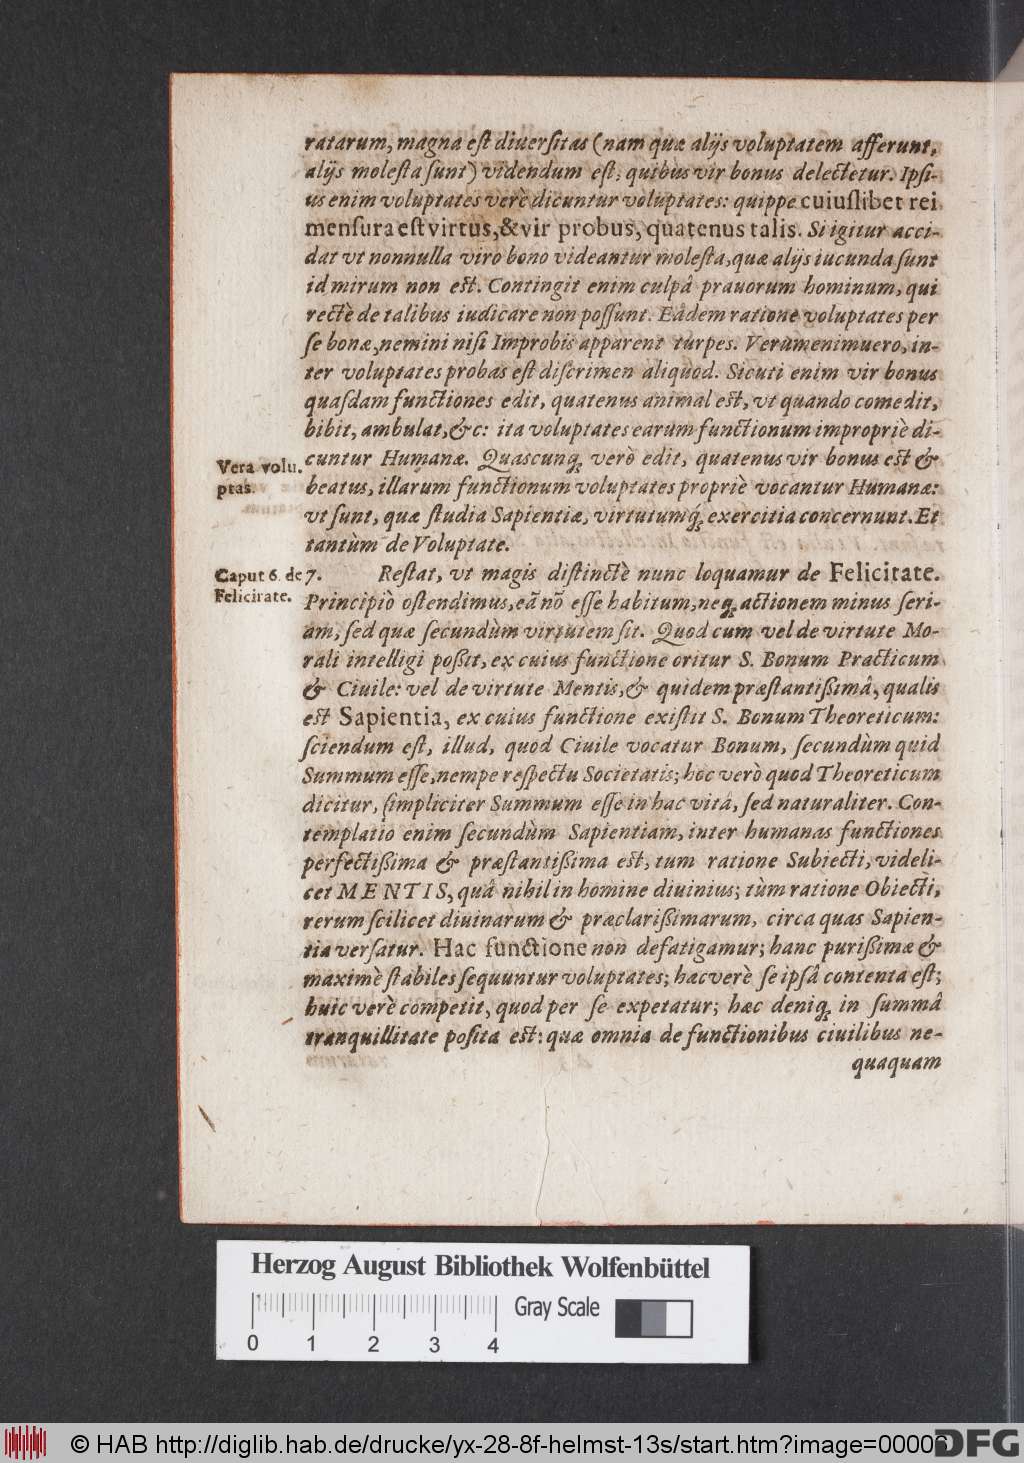 ratarum, magna est diuersitas (nam quæ alijs voluptatem afferunt,
alijs molesta sunt) videndum est, quibus vir bonus delectetur. Ipsi-
us enim voluptates verè dicuntur voluptates: quippe cuiuslibet rei
mensura est virtus, & vir probus, quatenus talis. Si igitur acci-
dat vt nonnulla viro bono videantur molesta, quæ alijs iucunda sunt
id mirum non est. Contingit enim culpâ prauorum hominum, qui
rectè de talibus iudicare non possunt. Eâdem ratione voluptates per
se bonæ, nemini nisi Improbis apparent turpes. Verumenimuero, in-
ter voluptates probas est discrimen aliquod. Sicuti enim vir bonus
quasdam functiones edit, quatenus animal est, vt quando comedit,
bibit, ambulat, &c: ita voluptates earum functionum impropriè di-
Vera volu.
ptas.
cuntur Humanæ. Quascunq; verò edit, quatenus vir bonus est &
beatus, illarum functionum voluptates propriè vocantur Humanæ:
vt sunt, quæ studia Sapientiæ, virtutumq; exercitia concernunt. Et
tantùm de Voluptate.
Caput 6. de 7.
Felicitate.
Restat, vt magis distinctè nunc loquamur de Felicitate.
Principiò ostendimus, eã nõ esse habitum, neq; actionem minus seri-
am, sed quæ secundùm virtutem sit. Quod cum vel de virtute Mo-
rali intelligi poßit, ex cuius functione oritur S. Bonum Practicum
& Ciuile: vel de virtute Mentis, & quidem præstantißimâ, qualis
est Sapientia, ex cuius functione existit S. Bonum Theoreticum:
sciendum est, illud, quod Ciuile vocatur Bonum, secundùm quid
Summum esse, nempe respectu Societatis; hoc verò quod Theoreticum
dicitur, simpliciter Summum esse in hac vitâ, sed naturaliter. Con-
templatio enim secundùm Sapientiam, inter humanas functiones
perfectißima & præstantißima est, tum ratione Subiecti, videli-
cet MENTIS, quâ nihil in homine diuinius; tùm ratione Obiecti,
rerum scilicet diuinarum & præclarißimarum, circa quas Sapien-
tia versatur. Hac functione non defatigamur; hanc purißimæ &
maximè stabiles sequuntur voluptates; hæc verè se ipsâ contenta est;
huic verè competit, quod per se expetatur; hæc deniq; in summâ
tranquillitate posita est: quæ omnia de functionibus ciuilibus ne-
quaquam
Herzog August Bibliothek Wolfenbüttel
Gray Scale
0 1 2 3 4
© HAB http://diglib.hab.de/drucke/yx-28-8f-helmst-13s/start.htm?image=00006
DFG